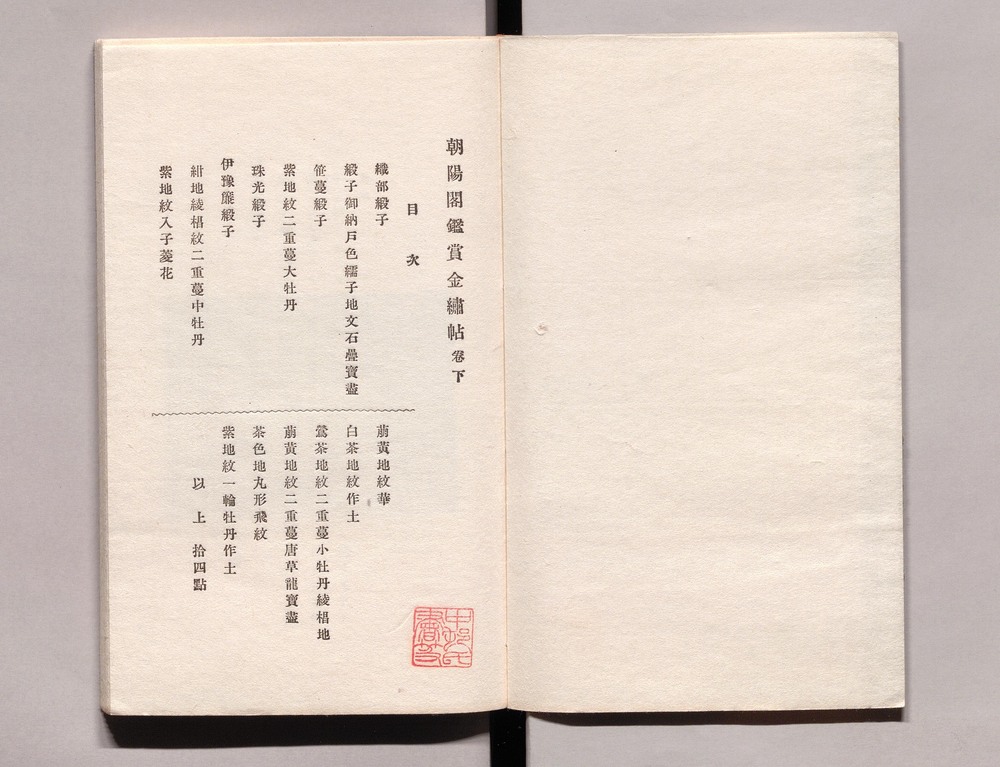 朝陽閣鑑賞金繡帖卷下
目次
織部緞子
緞子御納戸色繻子地文石疊寶盡
笹蔓緞子
紫地紋二重蔓大牡丹
珠光緞子
伊豫簾緞子
紺地綾椙紋二重蔓中牡丹
紫地紋入子菱花
萠黃地紋華
白茶地紋作土
鶯茶地紋二重蔓小牡丹綾椙地
萠黃地紋二重蔓唐草龍寶盡
茶色地丸形飛紋
紫地紋一輪牡丹作土
以上拾四點